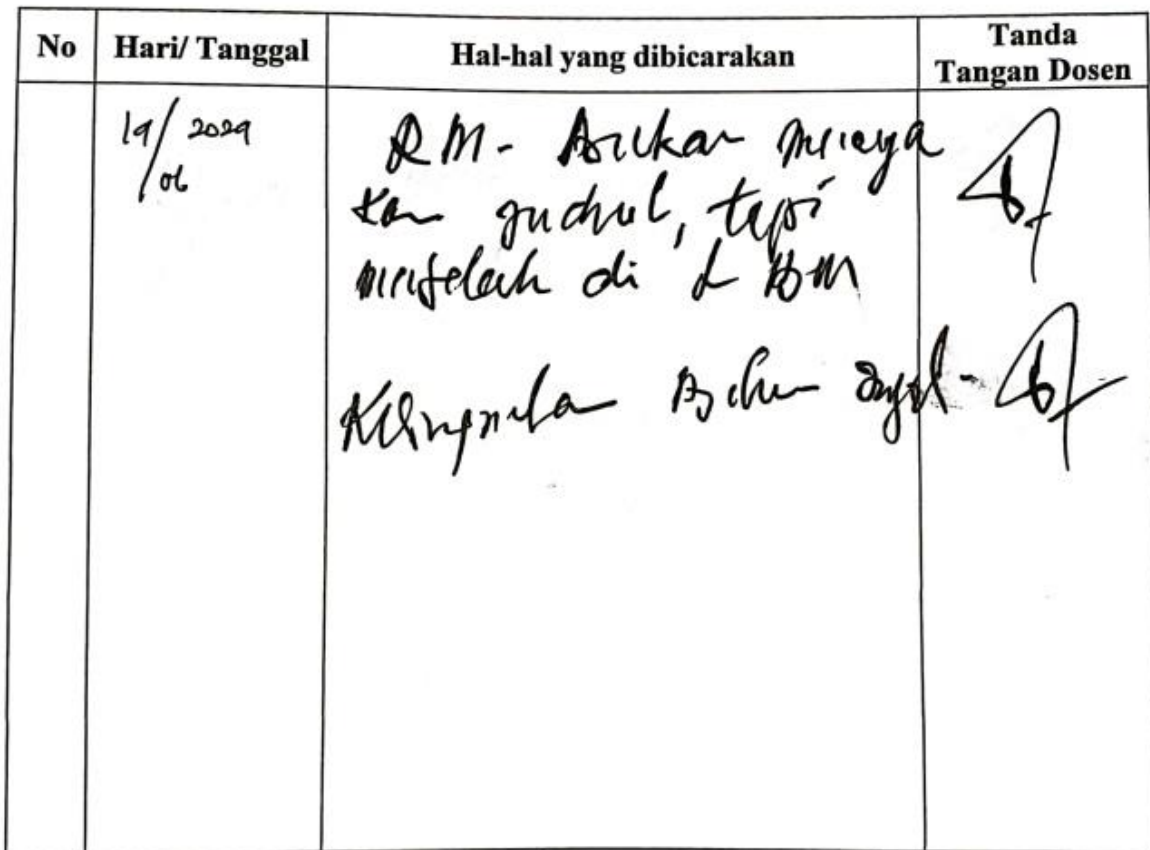 No
Hari/ Tanggal
Hal-hal yang dibicarakan
Tanda
Tangan Dosen
19/06 2024
RM - Bukan menanya
kan judul, tapi
masalah di LBM
Kesimpulan